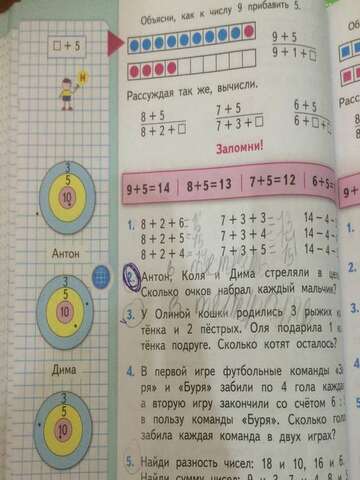 Объясни, как к числу 9 прибавить 5.
□ + 5
9 + 5
9 + 1 + □
Рассуждая так же, вычисли.
8 + 5
8 + 2 + □
7 + 5
7 + 3 + □
6 + 5
6 + □ + □
Запомни!
9+5=14 | 8+5=13 | 7+5=12 | 6+5=
1. 8 + 2 + 6 7 + 3 + 3 14 - 4 -
8 + 2 + 5 7 + 3 + 4 14 - 4 -
8 + 2 + 4 7 + 3 + 5 14 - 4 -
3
5
10
Антон
3
5
10
Дима
3
5
10
2. Антон, Коля и Дима стреляли в
Сколько очков набрал каждый мальчик?
3. У Олиной кошки родились 3 рыжих
тёнка и 2 пёстрых. Оля подарила 1
тёнка подруге. Сколько котят осталось?
4. В первой игре футбольные команды
ря» и «Буря» забили по 4 гола
а вторую игру закончили со счётом 6 :
в пользу команды «Буря». Сколько
забила каждая команда в двух играх?
5. Найди разность чисел: 18 и 10, 16 и 6.